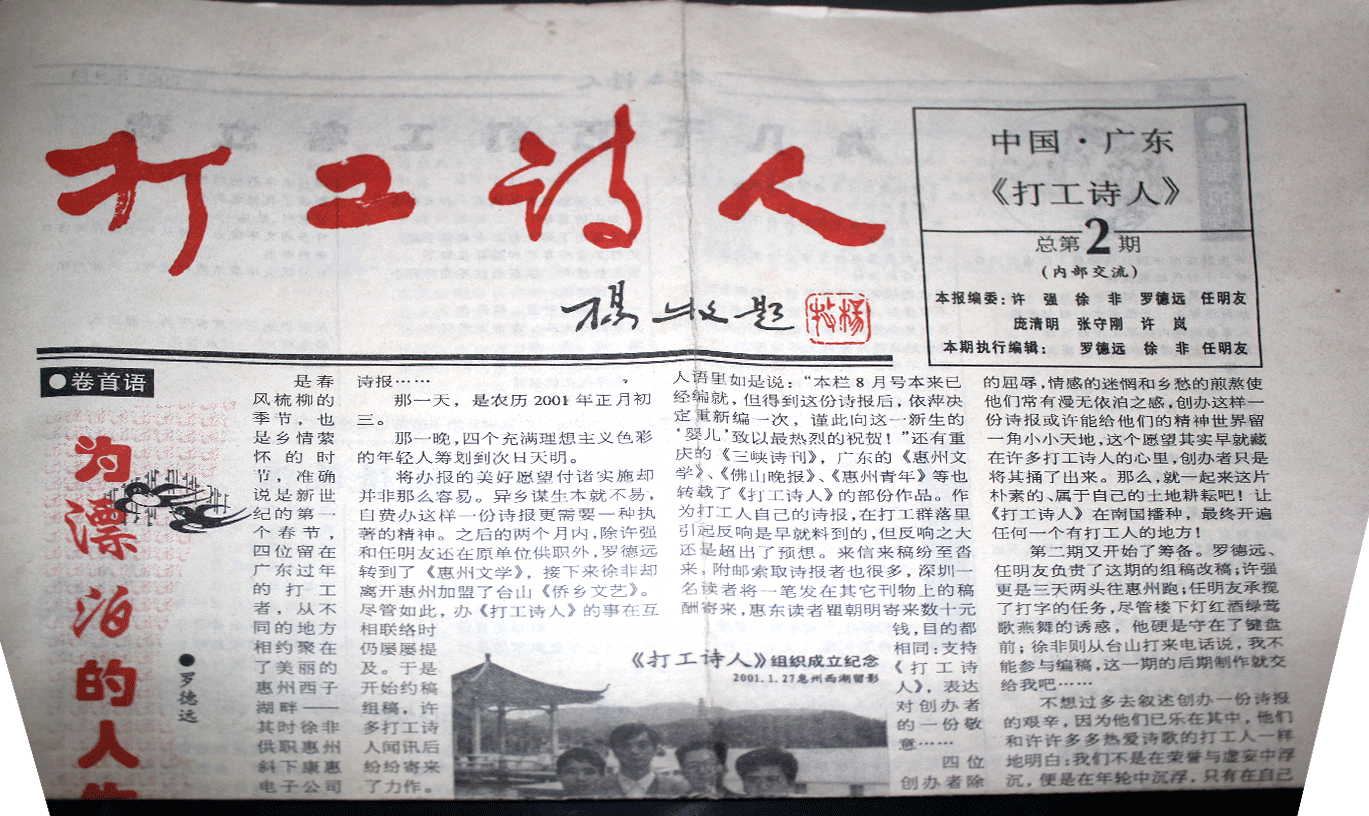 打工诗人
杨牧题
中国·广东
《打工诗人》
总第2期
(内部交流)
本报编委:许 强 徐 非 罗德远 任明友
庞清明 张守刚 许 岚
本期执行编辑: 罗德远 徐 非 任明友
●卷首语
为漂泊的人
●罗德远
是春
风梳柳的
季节,也
是乡情萦
怀的时
节,准确
说是新世
纪的第一
个春节,
四位留在
广东过年
的打工
者,从不
同的地方
相约聚在
了美丽的
惠州西子
湖畔——
其时徐非
供职惠州
斜下康惠
电子公司
诗报……
那一天,是农历2001年正月初
三。
那一晚,四个充满理想主义色彩
的年轻人筹划到次日天明。
将办报的美好愿望付诸实施却
并非那么容易。异乡谋生本就不易,
自费办这样一份诗报更需要一种执
著的精神。之后的两个月内,除许强
和任明友还在原单位供职外,罗德远
转到了《惠州文学》,接下来徐非却
离开惠州加盟了台山《侨乡文艺》。
尽管如此,办《打工诗人》的事在互
相联络时
仍屡屡提
及。于是
开始约稿
组稿,许
多打工诗
人闻讯后
纷纷寄来
了力作。
《打工诗人》组织成立纪念
2001.1.27惠州西湖留影
人语里如是说:“本栏8月号本来已
经编就,但得到这份诗报后,依萍决
定重新编一次,谨此向这一新生的
‘婴儿’致以最热烈的祝贺!”还有重
庆的《三峡诗刊》,广东的《惠州文
学》、《佛山晚报》、《惠州青年》等也
转载了《打工诗人》的部份作品。作
为打工人自己的诗报,在打工群落里
引起反响是早就料到的,但反响之大
还是超出了预想。来信来稿纷至沓
来,附邮索取诗报者也很多,深圳一
名读者将一笔发在其它刊物上的稿
酬寄来,惠东读者瞿朝明寄来数十元
钱,目的都
相同:支持
《打工诗
人》,表达
对创办者
的一份敬
意……
四位
创办者除
的屈辱,情感的迷惘和乡愁的煎熬使
他们常有漫无依泊之感,创办这样一
份诗报或许能给他们的精神世界留
一角小小天地,这个愿望其实早就藏
在许多打工诗人的心里,创办者只是
将其捅了出来。那么,就一起来这片
朴素的、属于自己的土地耕耘吧!让
《打工诗人》在南国播种,最终开遍
任何一个有打工人的地方!
第二期又开始了筹备。罗德远、
任明友负责了这期的组稿改稿;许强
更是三天两头往惠州跑;任明友承揽
了打字的任务,尽管楼下灯红酒绿莺
歌燕舞的诱惑,他硬是守在了键盘
前;徐非则从台山打来电话说,我不
能参与编稿,这一期的后期制作就交
给我吧……
不想过多去叙述创办一份诗报
的艰辛,因为他们已乐在其中,他们
和许许多多热爱诗歌的打工人一样
地明白:我们不是在荣誉与虚妄中浮
沉,便是在年轮中沉浮,只有在自己